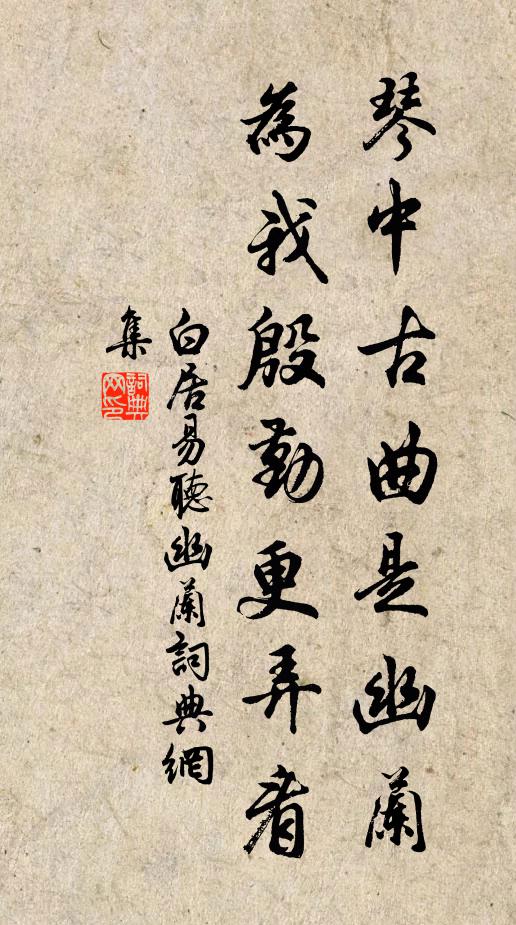 琴中古曲是幽蘭
為我殷勤更弄看
白居易聽幽蘭詞典網
集
詞典網印